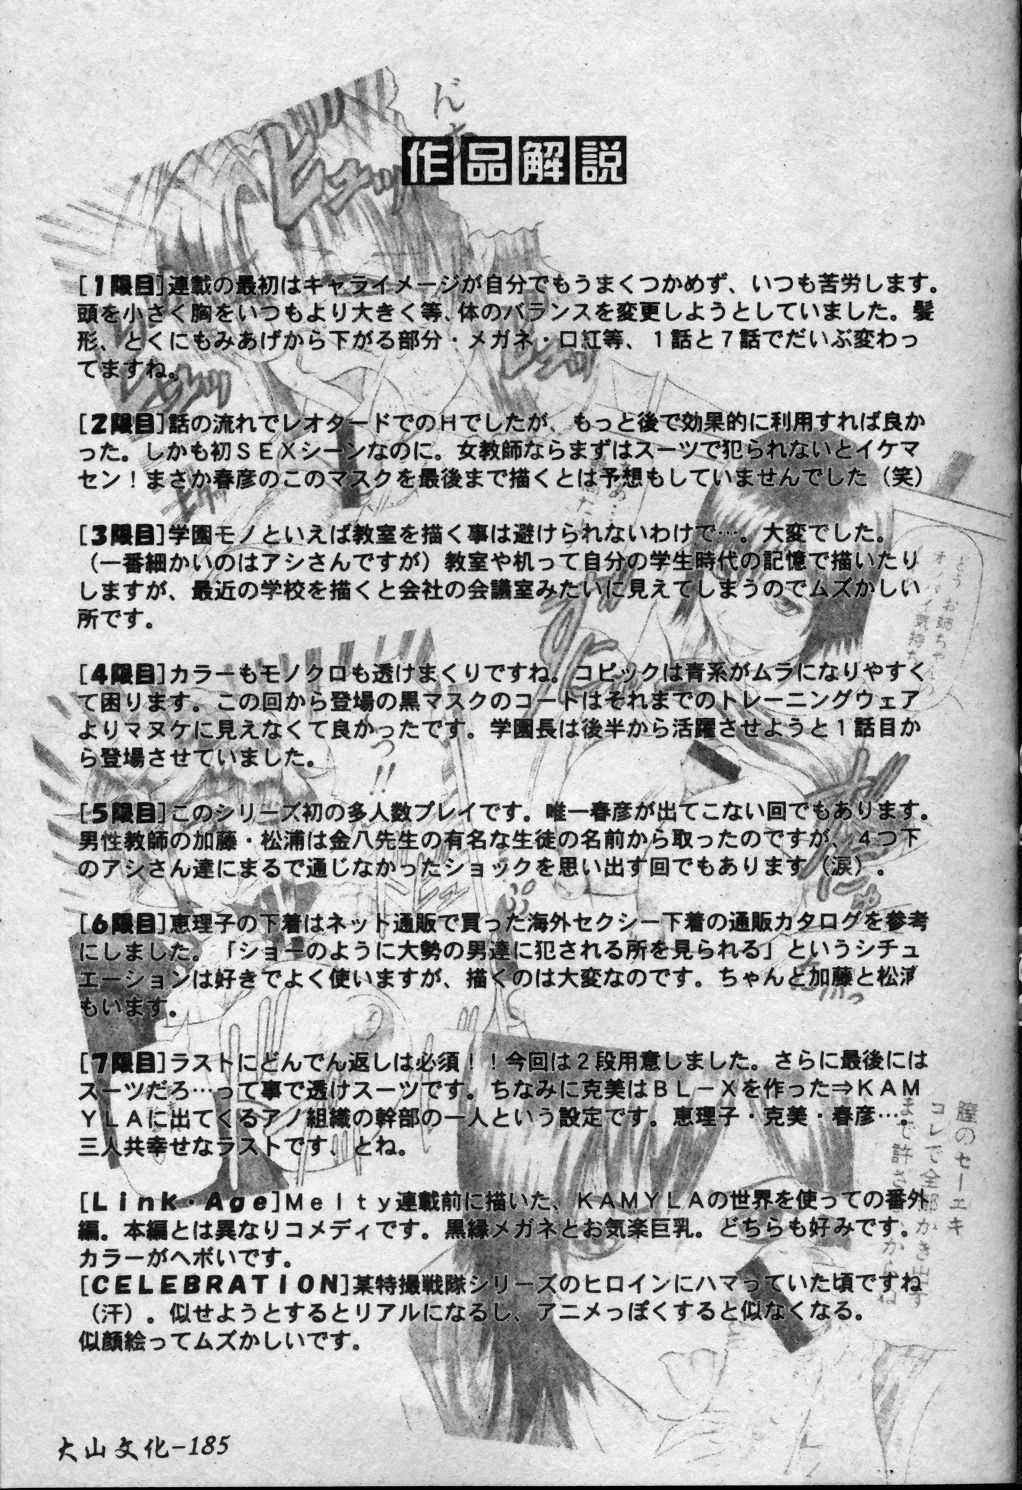 作品解説
[1限目]連載の最初はキャライメージが自分でもうまくつかめず、いつも苦労します。
頭を小さく胸をいつもより大きく等、体のバランスを変更しようとしていました。髪
形、とくにもみあげから下がる部分・メガネ・口紅等、1話と7話でだいぶ変わっ
てますね。
[2限目]話の流れでレオタードでのHでしたが、もっと後で効果的に利用すれば良か
った。しかも初SEXシーンなのに。女教師ならまずはスーツで犯られないとイケマ
セン!まさか春彦のこのマスクを最後まで描くとは予想もしていませんでした(笑)
[3限目]学園モノといえば教室を描く事は避けられないわけで…。大変でした。
(一番細かいのはアシさんですが)教室や机って自分の学生時代の記憶で描いたり
しますが、最近の学校を描くと会社の会議室みたいに見えてしまうのでムズかしい
所です。
[4限目]カラーもモノクロも透けまくりですね。コピックは青系がムラになりやすく
て困ります。この回から登場の黒マスクのコートはそれまでのトレーニングウェア
よりマヌケに見えなくて良かったです。学園長は後半から活躍させようと1話目か
ら登場させていました。
[5限目]このシリーズ初の多人数プレイです。唯一春彦が出てこない回でもあります。
男性教師の加藤・松浦は金八先生の有名な生徒の名前から取ったのですが、4つ下
のアシさん達にまるで通じなかったショックを思い出す回でもあります(涙)。
[6限目]恵理子の下着はネット通販で買った海外セクシー下着の通販カタログを参考
にしました。「ショーのように大勢の男達に犯される所を見られる」というシチュ
エーションは好きでよく使いますが、描くのは大変なのです。ちゃんと加藤と松浦
もいます。
[7限目]ラストにどんでん返しは必須!!今回は2段用意しました。さらに最後には
スーツだろ…って事で透けスーツです。ちなみに克美はBL-Xを作った⇒KAM
YLAに出てくるアノ組織の幹部の一人という設定です。恵理子・克美・春彦…。
三人共幸せなラストです、とね。
[Link・Age]Melty連載前に描いた、KAMYLAの世界を使っての番外
編。本編とは異なりコメディです。黒縁メガネとお気楽巨乳。どちらも好みです。
カラーがヘボいです。
[CELEBRATION]某特撮戦隊シリーズのヒロインにハマっていた頃ですね
(汗)。似せようとするとリアルになるし、アニメっぽくすると似なくなる。
似顔絵ってムズかしいです。
ビュッ
膣のセーエキ
コレで全部かき出す
大山文化-185